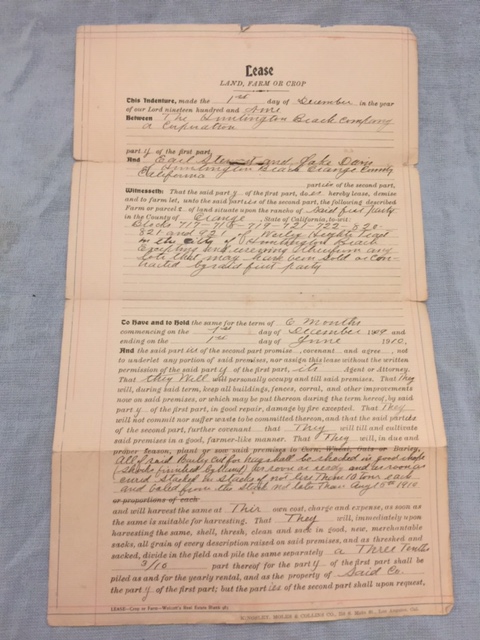 Lease
LAND, FARM OR CROP
This Indenture, made the 1st day of December in the year
of our Lord nineteen hundred and Nine
Between The Huntington Beach Company
a Corporation
part y of the first part,
And Earl Stewart and Jake Dorn
of Huntington Beach Orange County
California
parties of the second part,
Witnesseth: That the said part y of the first part, does hereby lease, demise
and to farm let, unto the said parties of the second part, the following described
Farm or parcel of land situate upon the rancho of Said first party
in the County of Orange, State of California, to-wit:
Blocks 717 - 718 - 719 - 721 - 722 - 820 -
821 and 921 of Wesley Heights Tract
in the City of Huntington Beach
Excepting and reserving therefrom any
lots that may have been sold or con-
tracted by said first party
To Have and to Hold the same for the term of 6 Months
commencing on the 1st day of December 1909 and
ending on the 1st day of June 1910,
And the said parties of the second part promise, covenant and agree, not
to underlet any portion of said premises, nor assign this lease without the written
permission of the said part y of the first part, its Agent or Attorney.
That they Will personally occupy and till said premises. That They
will, during said term, keep all buildings, fences, corral, and other improvements
now on said premises, or which may be put thereon during the term hereof, by said
part y of the first part, in good repair, damage by fire excepted. That They
will not commit nor suffer waste to be committed thereon, and that the said parties
of the second part, further covenant that They will till and cultivate
said premises in a good, farmer-like manner. That They will, in due and
proper season, plant or sow said premises to Corn, Wheat, Oats or Barley,
All of said Barley Cut for Hay shall to shocked in good shape
(Shocks finished by hand) as soon as ready and as soon as
cured Stacked in Stacks of not less than 10 tons each
and baled from the Stack not later than Aug 10th 1910
or proportions of each
and will harvest the same at Their own cost, charge and expense, as soon as
the same is suitable for harvesting. That They will, immediately upon
harvesting the same, shell, thresh, clean and sack in good, new, merchantable
sacks, all grain of every description raised on said premises, and as threshed and
sacked, divide in the field and pile the same separately a Three Tenths
3/10 part thereof for the part y of the first part shall be
piled as and for the yearly rental, and as the property of Said Co.
the part y of the first part; but the parties of the second part shall upon request,
LEASE—Crop or Farm—Wolcott's Real Estate Blank